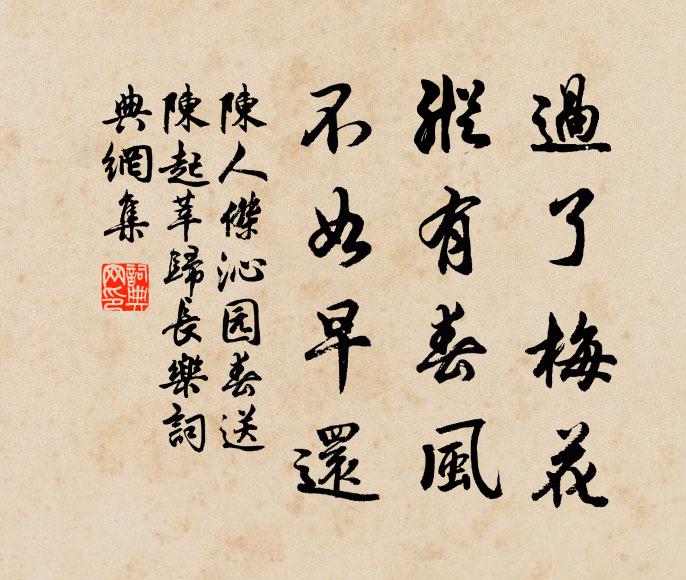 過了梅花
縱有春風
不如早還
陳人傑沁园春送
陳起莘歸長樂詞
典網集
詞典网印